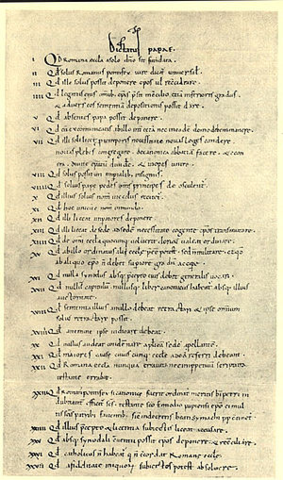 Dictatus papae.
I Qd Romana eccla a solo dno sit fundata.
II Qd solus Romanus pontifex iure dicat universal.
III Qd ille solus possit deponere epos vel reconciliare.
IIII Qd legatus eius omib; epis presit in concilio etia inferioris gradus.
& adversus eos sententiam depositionis possit dare.
V Qd absentes papa possit deponere.
VI Qd cu excommunicatis ab illo inter cetera nec in eade domo debemus manere.
VII Qd illi soli licet pro temporis necessitate novas leges condere
novas plebes congregare. de canonica abbatia facere. & econ
tra. divite episcopatum dividere. & inopes unire.
VIII Qd solus possit uti imperialib; insigniis.
VIIII Qd solius pape pedes omnes principes deosculent.
X Qd illius solius nom in ecclesiis recitet.
XI Qd hoc unicum est nom in mundo.
XII Qd illi liceat imperatores deponere.
XIII Qd illi liceat de sede ad sede necessitate cogente epos transmutare.
XIIII Qd de omi eccla quocunq; voluerit clericu valeat ordinare.
XV Qd ab illo ordinatus alii eccle pee potest. sed non militare. et qd
ab aliquo epo n debet superiore gradu accipe.
XVI Qd nulla synodus absq; pcepto eius debet generalis vocari.
XVII Qd nullu capitulum nullusq; liber canonicus habeat absq; illius
auctoritate.
XVIII Qd sententia illius a nullo debeat retractari. & ipse omnium
solus retractare possit.
XVIIII Qd a nemine ipse iudicari debeat.
XX Qd nullus audeat condemnare aplica sede apellante.
XXI Qd maiores cause cuiuscunq; eccle ad ea referri debeant.
XXII Qd Romana eccla nunquam erravit nec inppetuu scriptura
testante errabit.
XXIII Qd Romanus pontifex si canonice fuerit ordinat meritis bti petri in
dubitanter efficit scs. testante sco Ennodio papiensi epo ei mul
tis scis patrib; faventib; sic in decretis beati symachi pp continet.
XXIIII Qd illius pcepto & licentia subiectis liceat accusare.
XXV Qd absq; synodali conventu possit epos deponere & reconciliare.
XXVI Qd catholicus n habeat q n concordat Romane eccle.
XXVII Qd a fidelitate iniquoru subiectos potest absolvere.